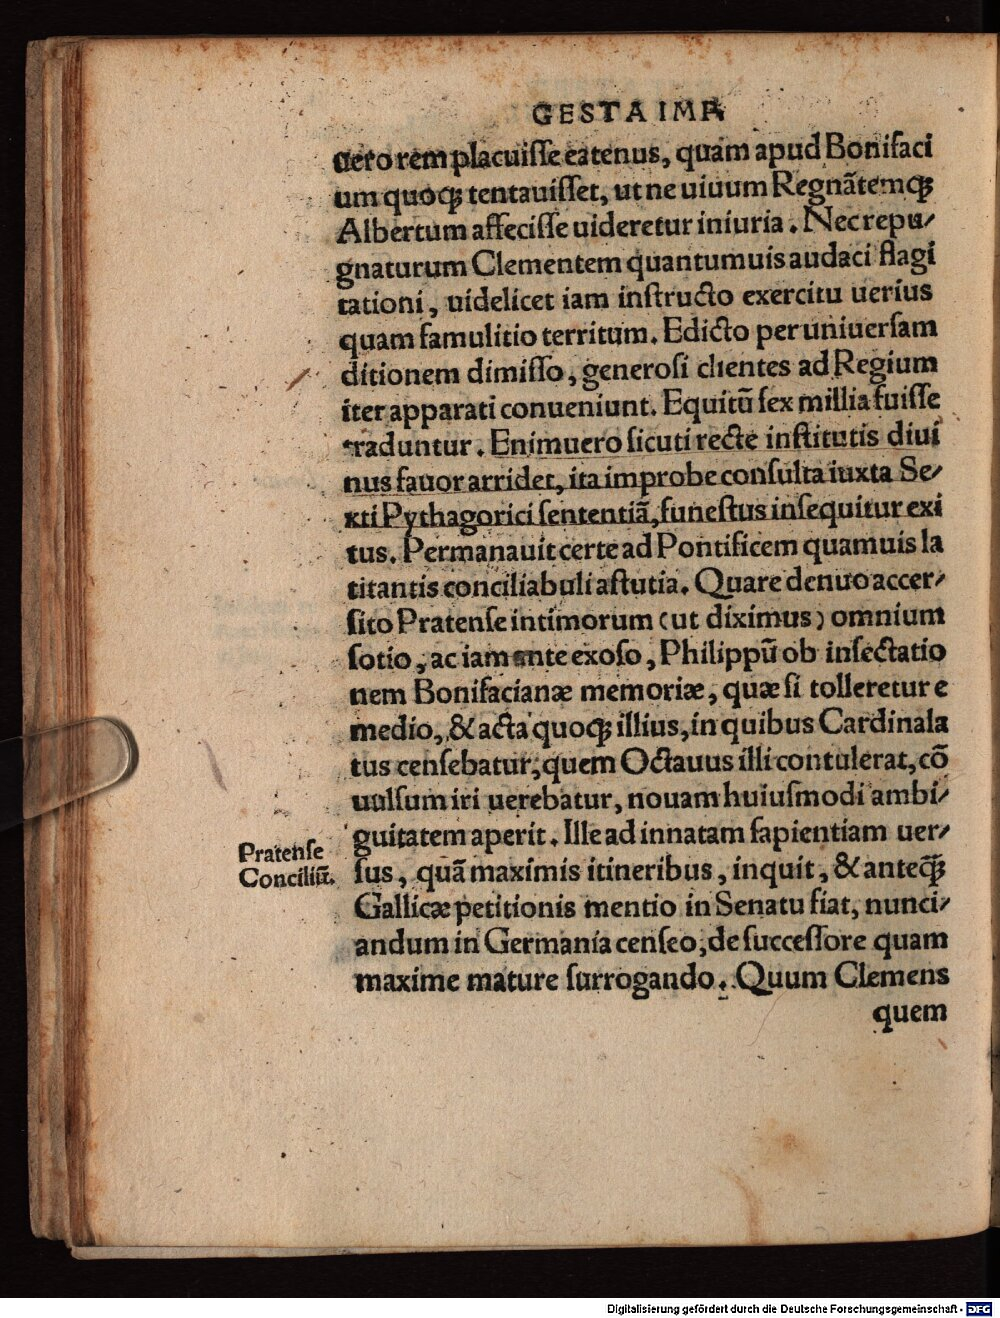 GESTA IMP.
uero rem placuiſſe eatenus, quam apud Bonifaci
um quoqꝫ tentauiſſet, ut ne uiuum Regnãtemqꝫ
Albertum affeciſſe uideretur iniuria. Nec repu⸗
gnaturum Clementem quantumuis audaci flagi
tationi, uidelicet iam inſtructo exercitu uerius
quam famulitio territum. Edicto per uniuerſam
ditionem dimiſſo, generoſi clientes ad Regium
iter apparati conueniunt. Equitũ ſex millia fuiſſe
traduntur. Enimuero ſicuti recte inſtitutis diui
nus fauor arridet, ita improbe conſulta iuxta Se⸗
xti Pythagorici ſententiã, funeſtus inſequitur exi
tus. Permanauit certe ad Pontificem quamuis la
titantis conciliabuli aſtutia. Quare denuo accer⸗
ſito Pratenſe intimorum (ut diximus) omnium
ſotio, ac iam ante exoſo, Philippũ ob inſectatio
nem Bonifacianæ memoriæ, quæ ſi tolleretur e
medio, & acta quoqꝫ illius, in quibus Cardinala
tus cenſebatur, quem Octauus illi contulerat, cõ
uulſum iri uerebatur, nouam huiuſmodi ambi⸗
guitatem aperit. Ille ad innatam ſapientiam uer⸗
ſus, quã maximis itineribus, inquit, & anteqꝫ̃
Gallicæ petitionis mentio in Senatu fiat, nunci⸗
andum in Germania cenſeo, de ſucceſſore quam
maxime mature ſurrogando. Quum Clemens
quem
Pratenſe
Conciliũ.
Digitalisierung gefördert durch die Deutsche Forschungsgemeinschaft - DFG